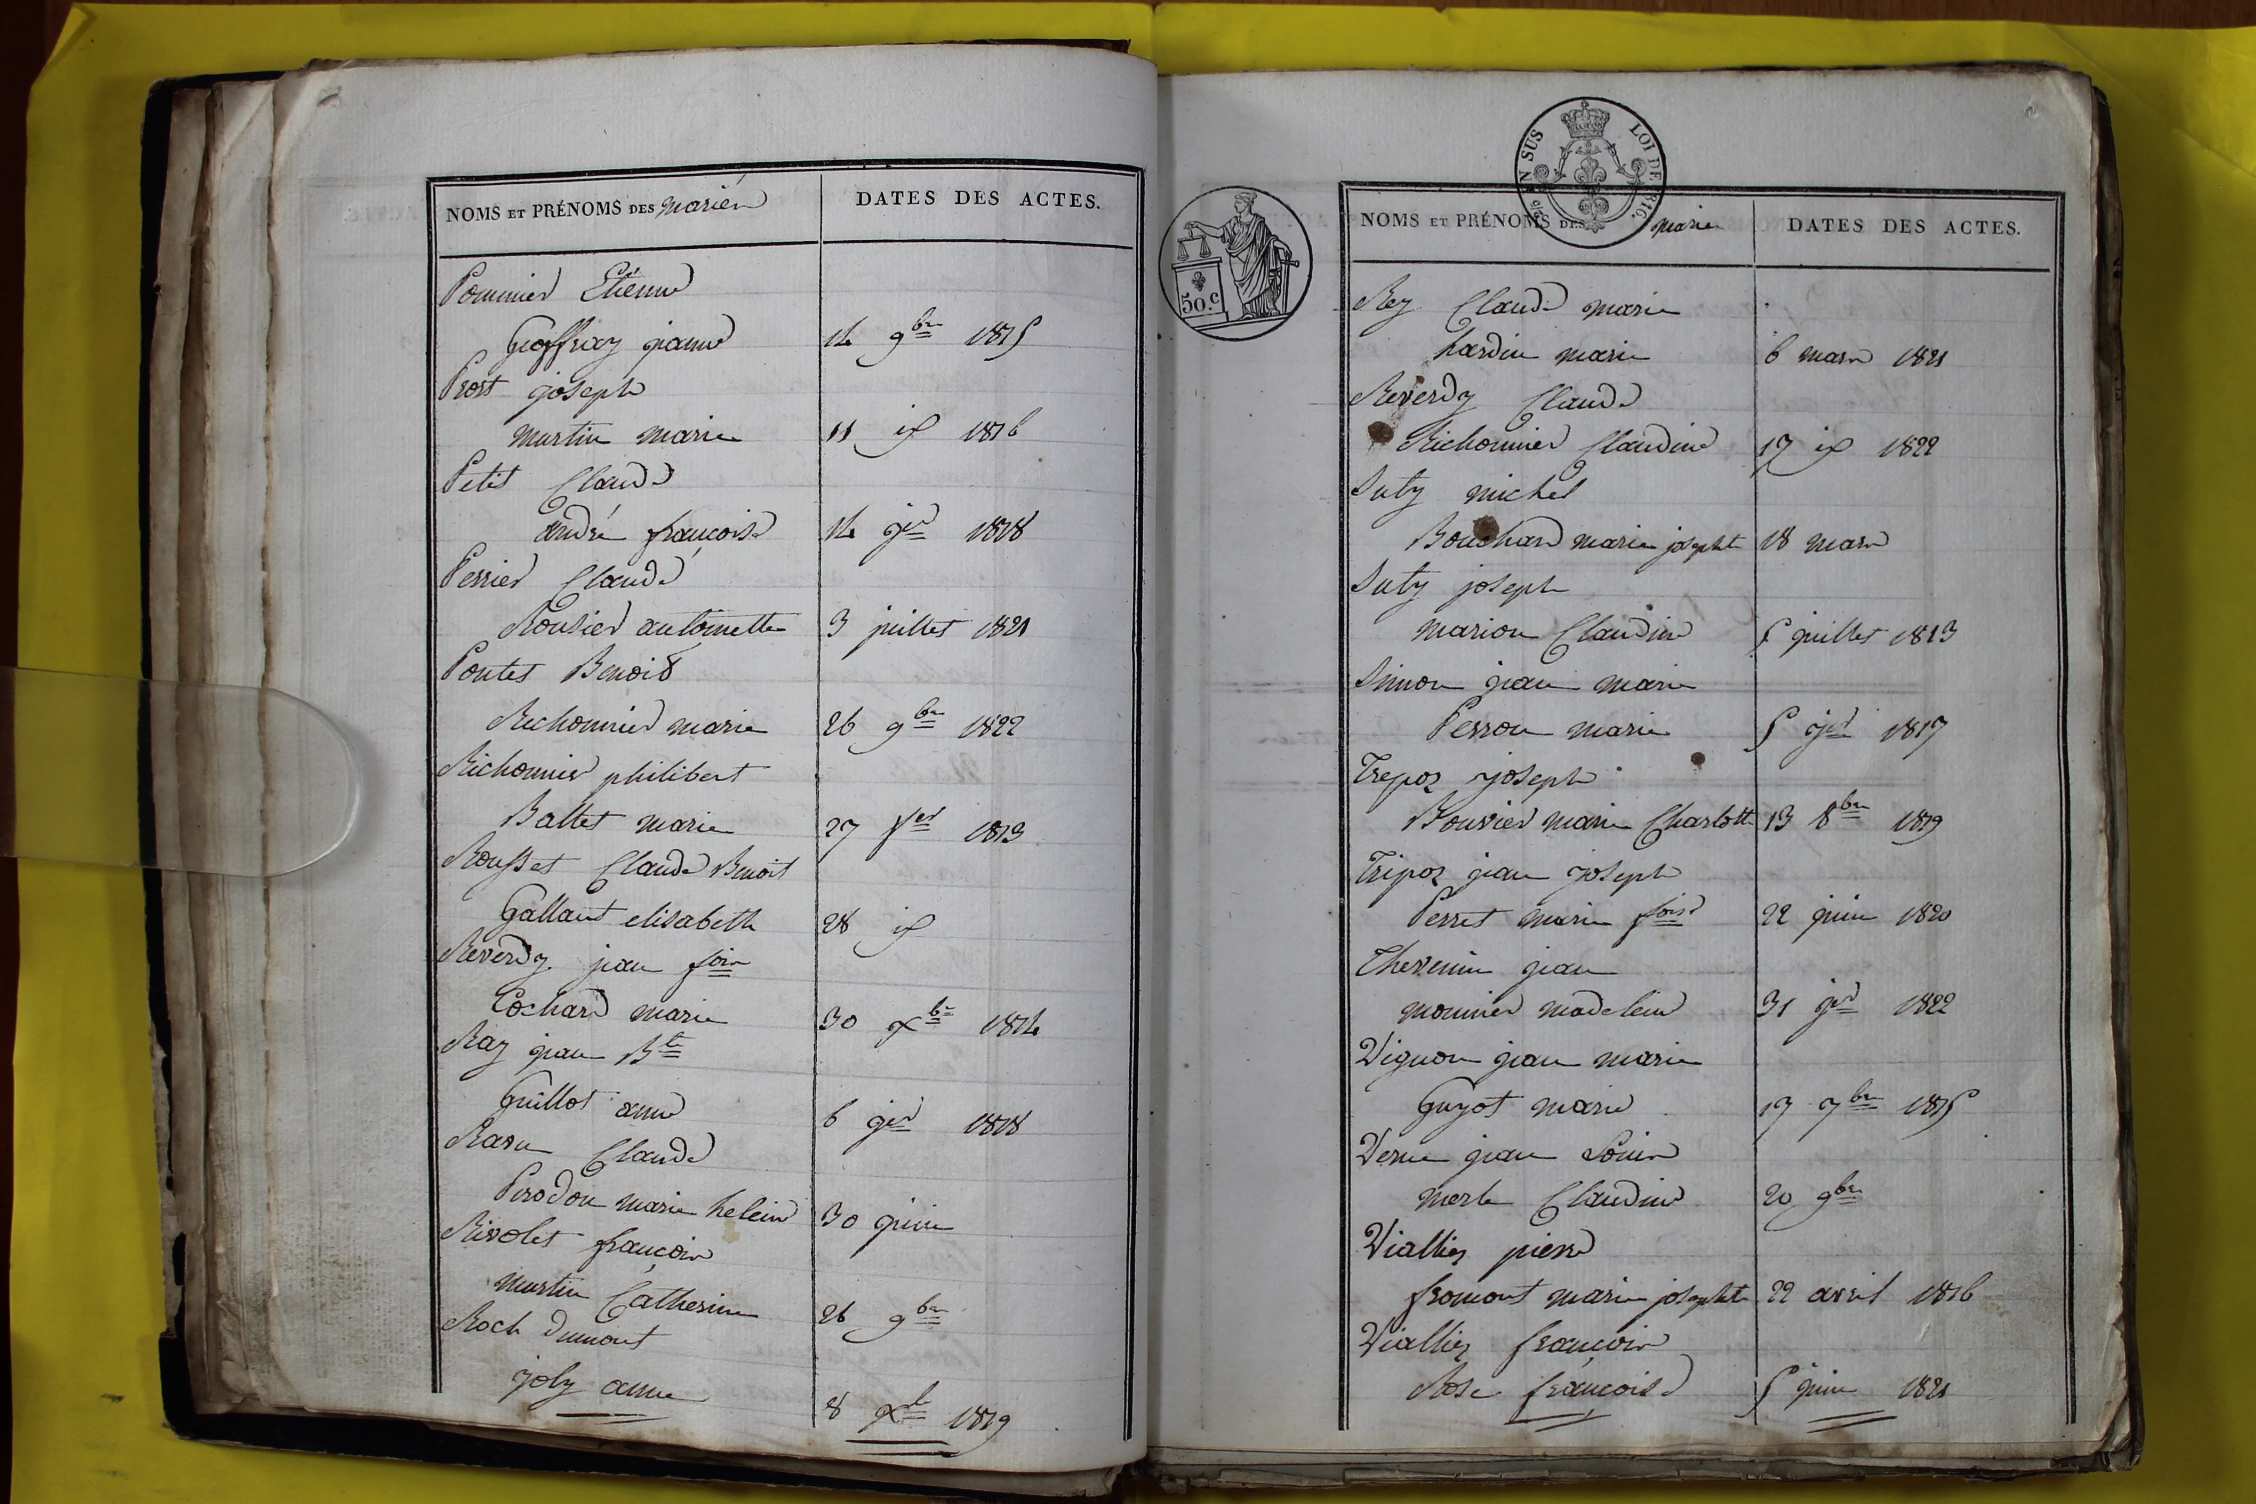 NOMS ET PRÉNOMS DES mariés
DATES DES ACTES.
Pommier Etienne
Geoffray jeanne 14 9bre 1815
Prost joseph
martin marie 11 id 1816
Petit Claude
andré françoise 14 jer 1818
Perrier Claude
Rousier antoinette 3 juillet 1821
Poutet Benoit
Richonnier marie 26 9bre 1822
Richonnier philibert
Ballet marie 27 1813
Rousset Claude Benoit
Gallant elisabeth 28 id
Reverdy jean fois
Cochard marie 30 xbre 1814
Ray jean Bte
Guillot anne 6 jer 1818
Ravu Claude
Perodon marie heleine 30 juin
Rivolet françois
martin Catherine 26 9bre
Roch dumont
joly anne 8 xbre 1819
N SUS
LOI DE
50.c
NOMS ET PRÉNOMS DES mariés
DATES DES ACTES.
Rey Claude marie
hardin marie 6 mars 1821
Reverdy Claude
Richonnier Claudine 17 id 1822
Suty michel
Bouchard marie josephte 18 mars
Suty joseph
marion Claudine 5 juillet 1813
Simon jean marie
Perron marie 5 jer 1817
Trepoz joseph
Bouvier marie Charlotte 13 8bre 1819
Tripoz jean joseph
Perret marie foise 22 juin 1820
Thevenin jean
monnier madeleine 31 jer 1822
Vignon jean marie
Guyot marie 17 7bre 1815
Verne jean Louis
merle Claudine 20 9bre
Vialliez pierre
fromont marie josephte 22 avril 1816
Vialliez françois
Rose françoise 5 juin 1821